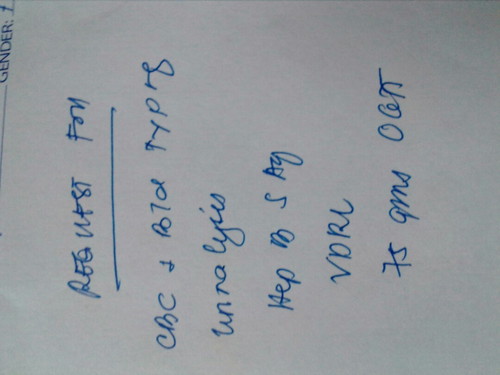 GENDER: F
REQUEST FOR
CBC & Bld TYPNG
Urinalysis
Hep B S Ag
VDRL
75 gms OGTT